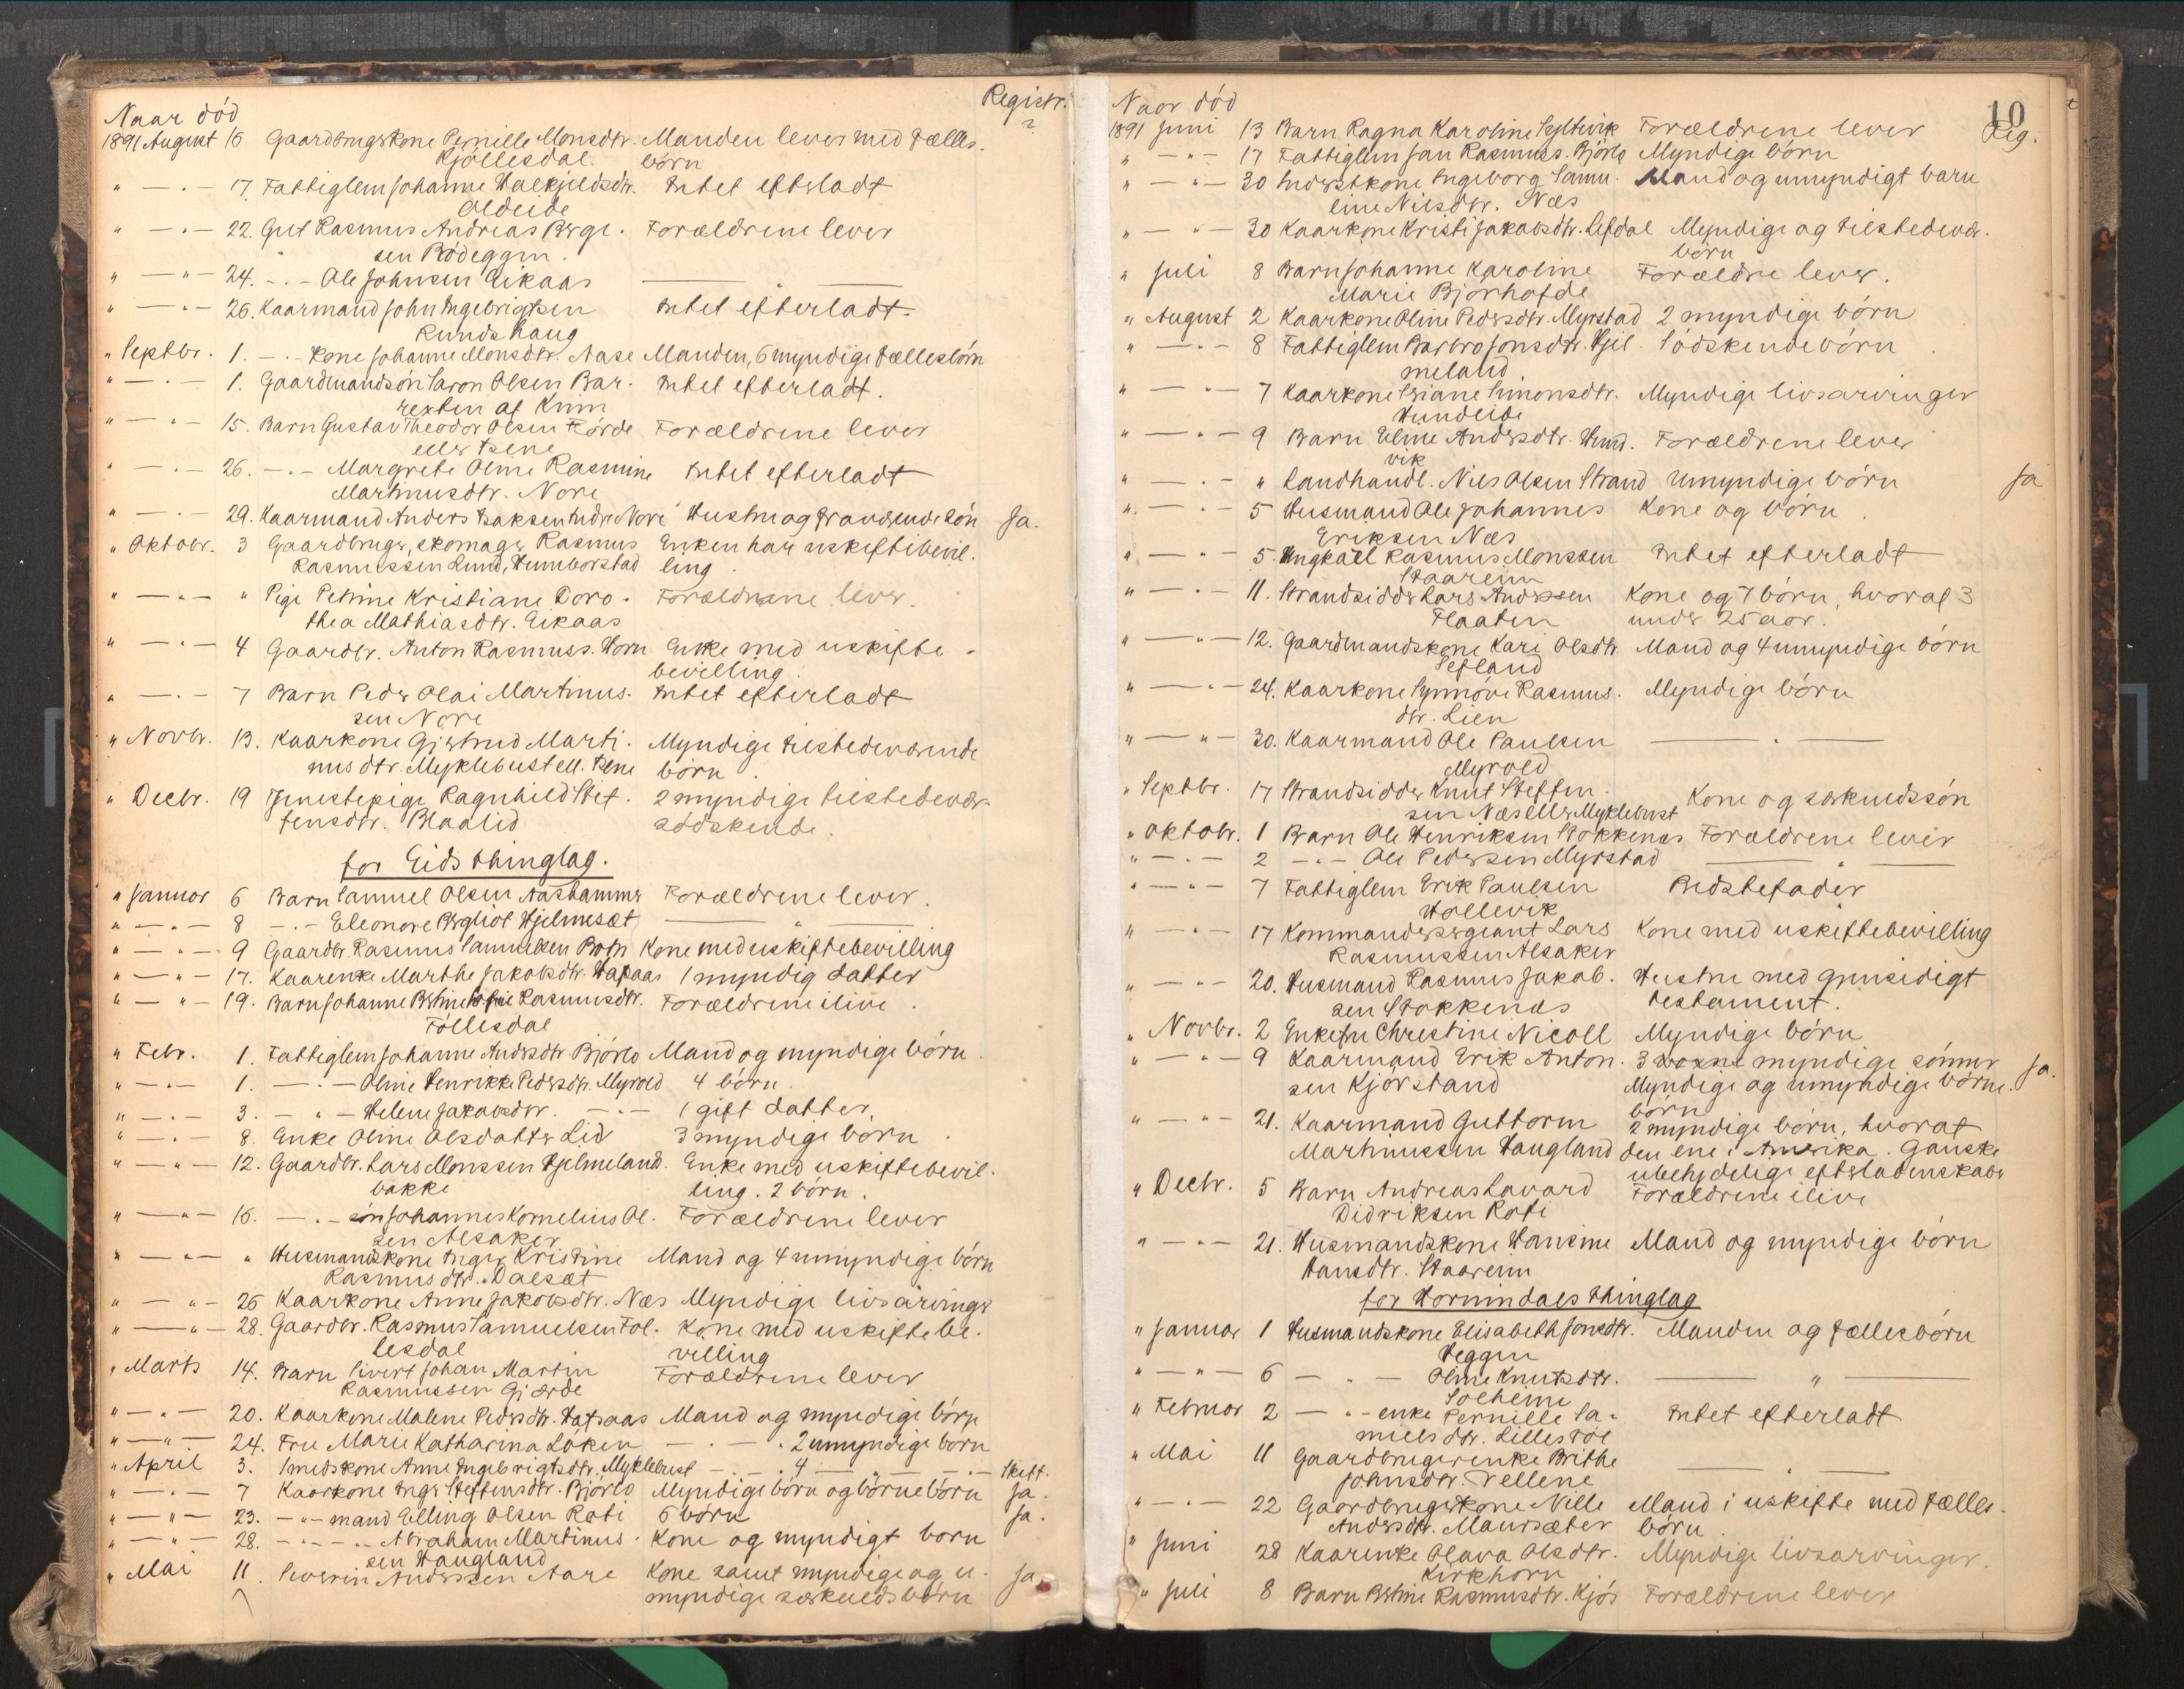 Naar död
Registr.
1891 August 16 Gaardbrugerkone Pernille Monsdtr. Manden lever med Fælles-
Kjöllesdal börn
" — " — 17. Fattiglem Johanne Walkjeldsdtr. Intet efterladt
Oldeide
" — " — 22. Gut Rasmus Andreas Berge. Forældrene lever
sen Rödeggen.
" — " — 24. - " - Ole Johnsen Eikaas — " —
" — " — 26. Kaarmand John Ingebrigtsen Intet efterladt.
Rundshaug
" Septbr. 1. - " - kone Johanne Monsdtr. Aase Manden, 6 myndige Fællesbörn
" — " — 1. Gaardmandsön Saron Olsen Bar. Intet efterladt.
rexten af Kinn
" — " — 15. Barn Gustav Theodor Olsen Förde Forældrene lever
eller Isene
" — " — 26. - " - Margrete Oline Rasmine Intet efterladt
Martinusdtr. Nore
" — " — 29. Kaarmand Anders Isaksen Indre Nore Hustru og fraværende Sön Ja.
" Oktobr. 3 Gaardbruger, skomager Rasmus Enken har uskiftebevil-
Rasmussen Lund, Humborstad ling.
" — " — " Pige Petrine Kristiane Doro- Forældrene lever.
thea Mathiasdtr. Eikaas
" — " — 4 Gaardbr. Anton Rasmuss. Horn Enke med uskifte-
bevilling.
" — " — 7 Barn Peder Olai Martinus- Intet efterladt
sen Nore
" Novbr. 13. Kaarkone Gjertrud Marti- Myndige tilstedeværende
nusdtr. Myklebust ell. Isene börn.
" Decbr. 19 Tjenestepige Ragnhild Stef- 2 myndige tilstedevær.
fensdtr. Blaalid södskende.
for Eids thinglag.
" Januar 6 Barn Samuel Olsen Aashammer Forældrene lever.
" — " — 8 - " - Eleonore Bergliot Hjelmesæt — " —
" — " — 9 Gaardbr. Rasmus Samuelsen Botn Kone med uskiftebevilling
" — " — 17. Kaarenke Marthe Jakobsdtr. Hafsaas 1 myndig datter
" — " — 19. Barn Johanne Bertine Rasmusdtr. Forældrene ilive.
Föllesdal
" Febr. 1. Fattiglem Johanne Andersdtr. Bjørlo Mand og myndige börn.
" — " — 1. - " - Oline Henrikke Pedersdtr. Myrold 4 börn.
" — " — 3. - " - Helene Jakobsdtr. - " - 1 gift datter.
" — " — 8. Enke Oline Olsdatter Lid 3 myndige börn.
" — " — 12. Gaardbr. Lars Monssen Hjelmeland. Enke med uskiftebevil-
bakke ling. 2 börn.
" — " — 16. - " - sön Johannes Kornelius Ol- Forældrene lever
sen Alsaker
" — " — " Husmandskone Inger Kristine Mand og 4 umyndige börn
Rasmusdtr. Dalsæt
" — " — 26 Kaarkone Anne Jakobsdtr. Næs Myndige livsarvinger
" — " — 28. Gaardbr. Rasmus Samuelsen Föl- Kone med uskiftebe-
lesdal villing
" Marts 14. Barn Sivert Johan Martin Forældrene lever
Rasmussen Gjærde
" — " — 20. Kaarkone Malene Pedersdtr. Hafsaas Mand og myndige börn
" — " — 24. Fru Marie Katharina Löken - " - 2 umyndige börn
" April 3. Smedskone Anne Ingebrigtsdtr. Myklebust - " - 4 - " - Skift.
" — " — 7 Kaarkone Inger Steffensdtr. Bjørlo Myndige börn og börnebörn Ja.
" — " — 23. - " - mand Elling Olsen Roti 6 börn Ja.
" — " — 28. - " - Abraham Martinus- Kone og myndigt barn
sen Haugland
" Mai 11. Severin Anderssen Aare Kone samt myndige og u- Ja
myndige særkuldsbörn
Naar död
10
Reg.
1891 Juni 13 Barn Ragna Karoline Hyltevik Forældrene lever
" — " — 17 Fattiglem Jan Rasmuss. Bjørlo Myndige börn
" — " — 30 Inderstkone Ingeborg Samu- Mand og umyndigt barn
eline Nilsdtr. Næs
" — " — 30 Kaarkone Kristi Jakobsdtr. Lefdal Myndige og tilstedevær.
börn
" Juli 8 Barn Johanne Karoline Forældre lever.
Marie Bjørhofde
" August 2 Kaarkone Oline Pedersdtr. Myrstad 2 myndige börn
" — " — 8 Fattiglem Barbro Jonsdtr. Hjel- Södskendebörn.
meland
" — " — 7 Kaarkone Seriane Simonsdtr. Myndige livsarvinger
Hundeide
" — " — 9 Barn Eline Andersdtr. Hund- Forældrene lever
vik
" — " — " Landhandl. Nils Olsen Strand Umyndige börn Ja
" — " — 5 Husmand Ole Johannes Kone og börn.
Eriksen Næs
" — " — 5. Ungkarl Rasmus Monssen Intet efterladt
Staareim
" — " — 11. Strandsidder Lars Anderssen Kone og 7 börn, hvoraf 3
Flaaten under 25 aar.
" — " — 12. Gaardmandskone Kari Olsdtr. Mand og 4 umyndige börn
Sefland
" — " — 24. Kaarkone Synnöve Rasmus- Myndige börn
dtr. Lien
" — " — 30. Kaarmand Ole Paulsen — " —
Myrold
" Septbr. 17 Strandsidder Knut Steffen- Kone og særkuldssön
sen Næs eller Myklebust
" Oktobr. 1 Barn Ole Henriksen Stokkenæs Forældrene lever
" — " — 2 - " - Ole Pedersen Myrstad — " —
" — " — 7 Fattiglem Erik Paulsen Bedstefader
Hollevik
" — " — 17 Kommandersergeant Lars Kone med uskiftebevilling
Rasmussen Alsaker
" — " — 20. Husmand Rasmus Jakob- Hustru med gjensidigt
sen Stokkenæs testament.
" Novbr. 2 Enkefru Christine Nicoll Myndige börn
" — " — 9 Kaarmand Erik Anton- 3 voxne myndige sönner Ja.
sen Kjörstand Myndige og umyndige börne-
börn
" — " — 21. Kaarmand Guttorm 2 myndige börn, hvoraf
Martinussen Haugland den ene i Amerika. Ganske
ubetydelige efterladenskaber
" Decbr. 5 Barn Andreas Lavard Forældrene ilive
Didriksen Roti
" — " — 21. Husmandskone Hansine Mand og myndige börn
Hansdtr. Staareim
for Hornindals thinglag
" Januar 1 Husmandskone Elisabeth Jonsdtr. Manden og fællesbörn
Heggen
" — " — 6 — " — Oline Knutsdtr. — " —
Solheim
" Februar 2 — " — enke Pernille Sa- Intet efterladt
mielsdtr. Lillestöl
" Mai 11 Gaardbrugerenke Brithe — " —
Johnsdtr. Tellene
" — " — 22 Gaardbrugerkone Nille Mand i uskifte med Fælles-
Andersdtr. Maursæter börn.
" Juni 28 Kaarenke Olava Olsdtr. Myndige livsarvinger.
Kirkhorn
" Juli 8 Barn Bertine Rasmusdtr. Kjös Forældrene lever